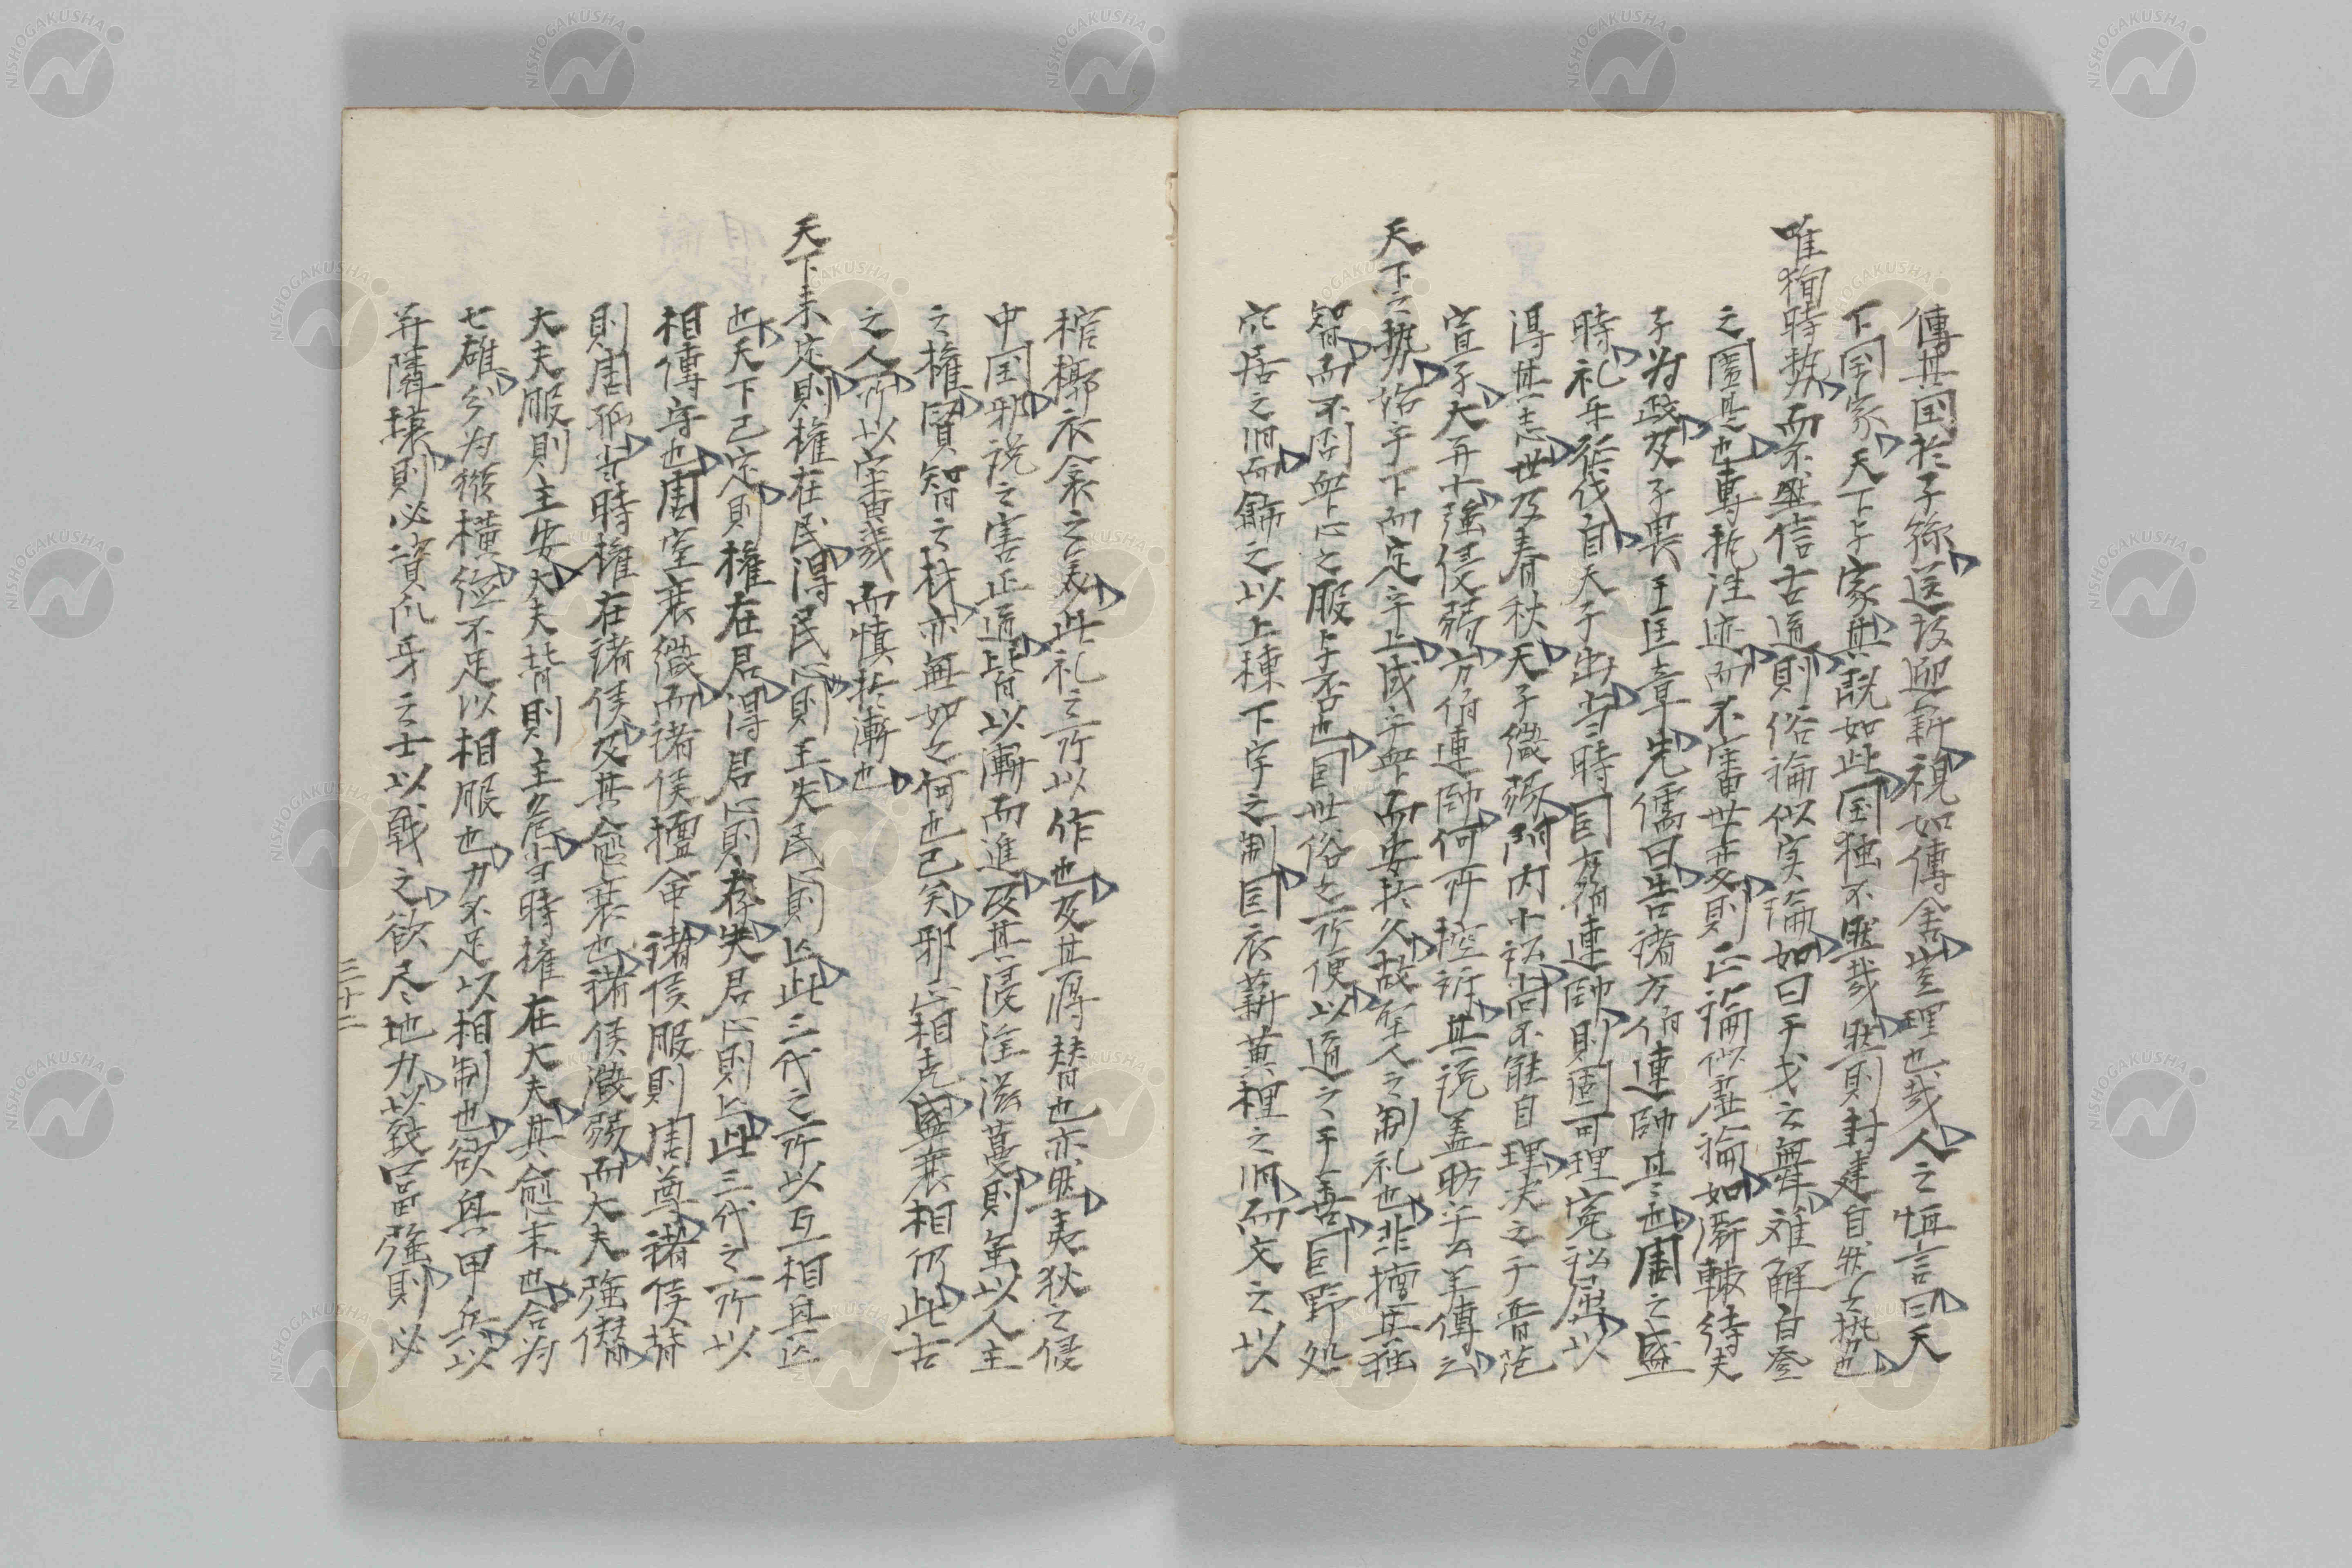 傳其国於子孫送故迎新視如傳舍豈理也哉人之恒言曰天
下国家天下与家無既如此国独不然哉然則封建自然之勢也
唯狥時勢而不然信古道則俗論似実論如曰干戈之舞难解白登
之圍是也專抱注迹而不審世变則正論似虛論如斎轅待夫
子为政及子畏于匡章先儒曰告諸方伯連帥是也周之盛
時礼乐征伐自天子出当時国有方伯連帥則固可理寃訟屈以
得其志世及春秋天子微弱閧内十訟尚不能自理决之于晋范
宣子大并小強侵弱方伯連帥何所控訴其説盖昉乎公羊傳云
天下之勢始乎下而定乎上成乎卑而安於久故聖人之制礼也非擅其独
智而不因衆心之服与否也因世俗之所便以道之于善因野処
穴居之旧而飾之以上棟下宇之制因衣薪葬裡之旧而文之以
棺槨衣衾之美此礼之所以作也及其将替也亦然夷狄之侵
中国邪説之害正道皆以漸而進及其浸淫滋蔓則至以人主
之権賢智之材亦無如之何也已矣邪正相乱盛衰相仍此古
之人所以審幾而慎於漸也
天下未定則権在民得民心則王失民則亡此三代之所以互相興亡
也天下已定則権在君得君心則存失君心則亡此三代之所以
相傳守也周室衰微而諸侯擅命諸侯服則周尊諸侯背
則周孤当時権在諸侯及其愈衰也諸侯微弱而大夫強僣
大夫服則主安大夫背則主危当時権在大夫其愈末也合为
七雄分为縦横德不足以相服也力不足以相制也欲興甲兵以
并隣壌則必資爪牙之士以戰之欲尽地力以致富強則必
三十二